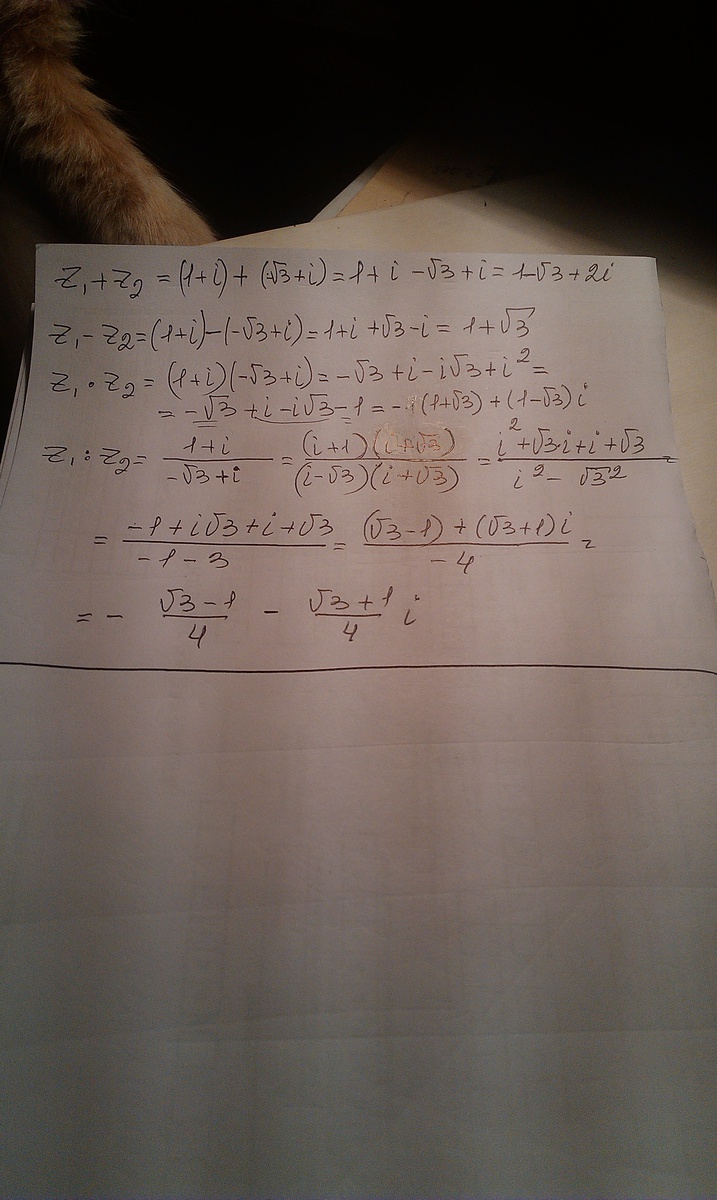 Z₁+Z₂ = (1+i) + (-√3+i) = 1+i -√3+i = 1-√3+2i
Z₁-Z₂ = (1+i)-(-√3+i) = 1+i+√3-i = 1+√3
Z₁·Z₂ = (1+i)(-√3+i) = -√3+i-i√3+i² =
= -√3+i-i√3-1 = -(1+√3)+(1-√3)i
Z₁:Z₂ = (1+i)/(-√3+i) = (i+1)(i+√3)/(i-√3)(i+√3) = (i²+√3·i+i+√3)/(i²-√3²) =
= (-1+i√3+i+√3)/(-1-3) = ((√3-1)+(√3+1)i)/(-4) =
= - (√3-1)/4 - (√3+1)/4 i